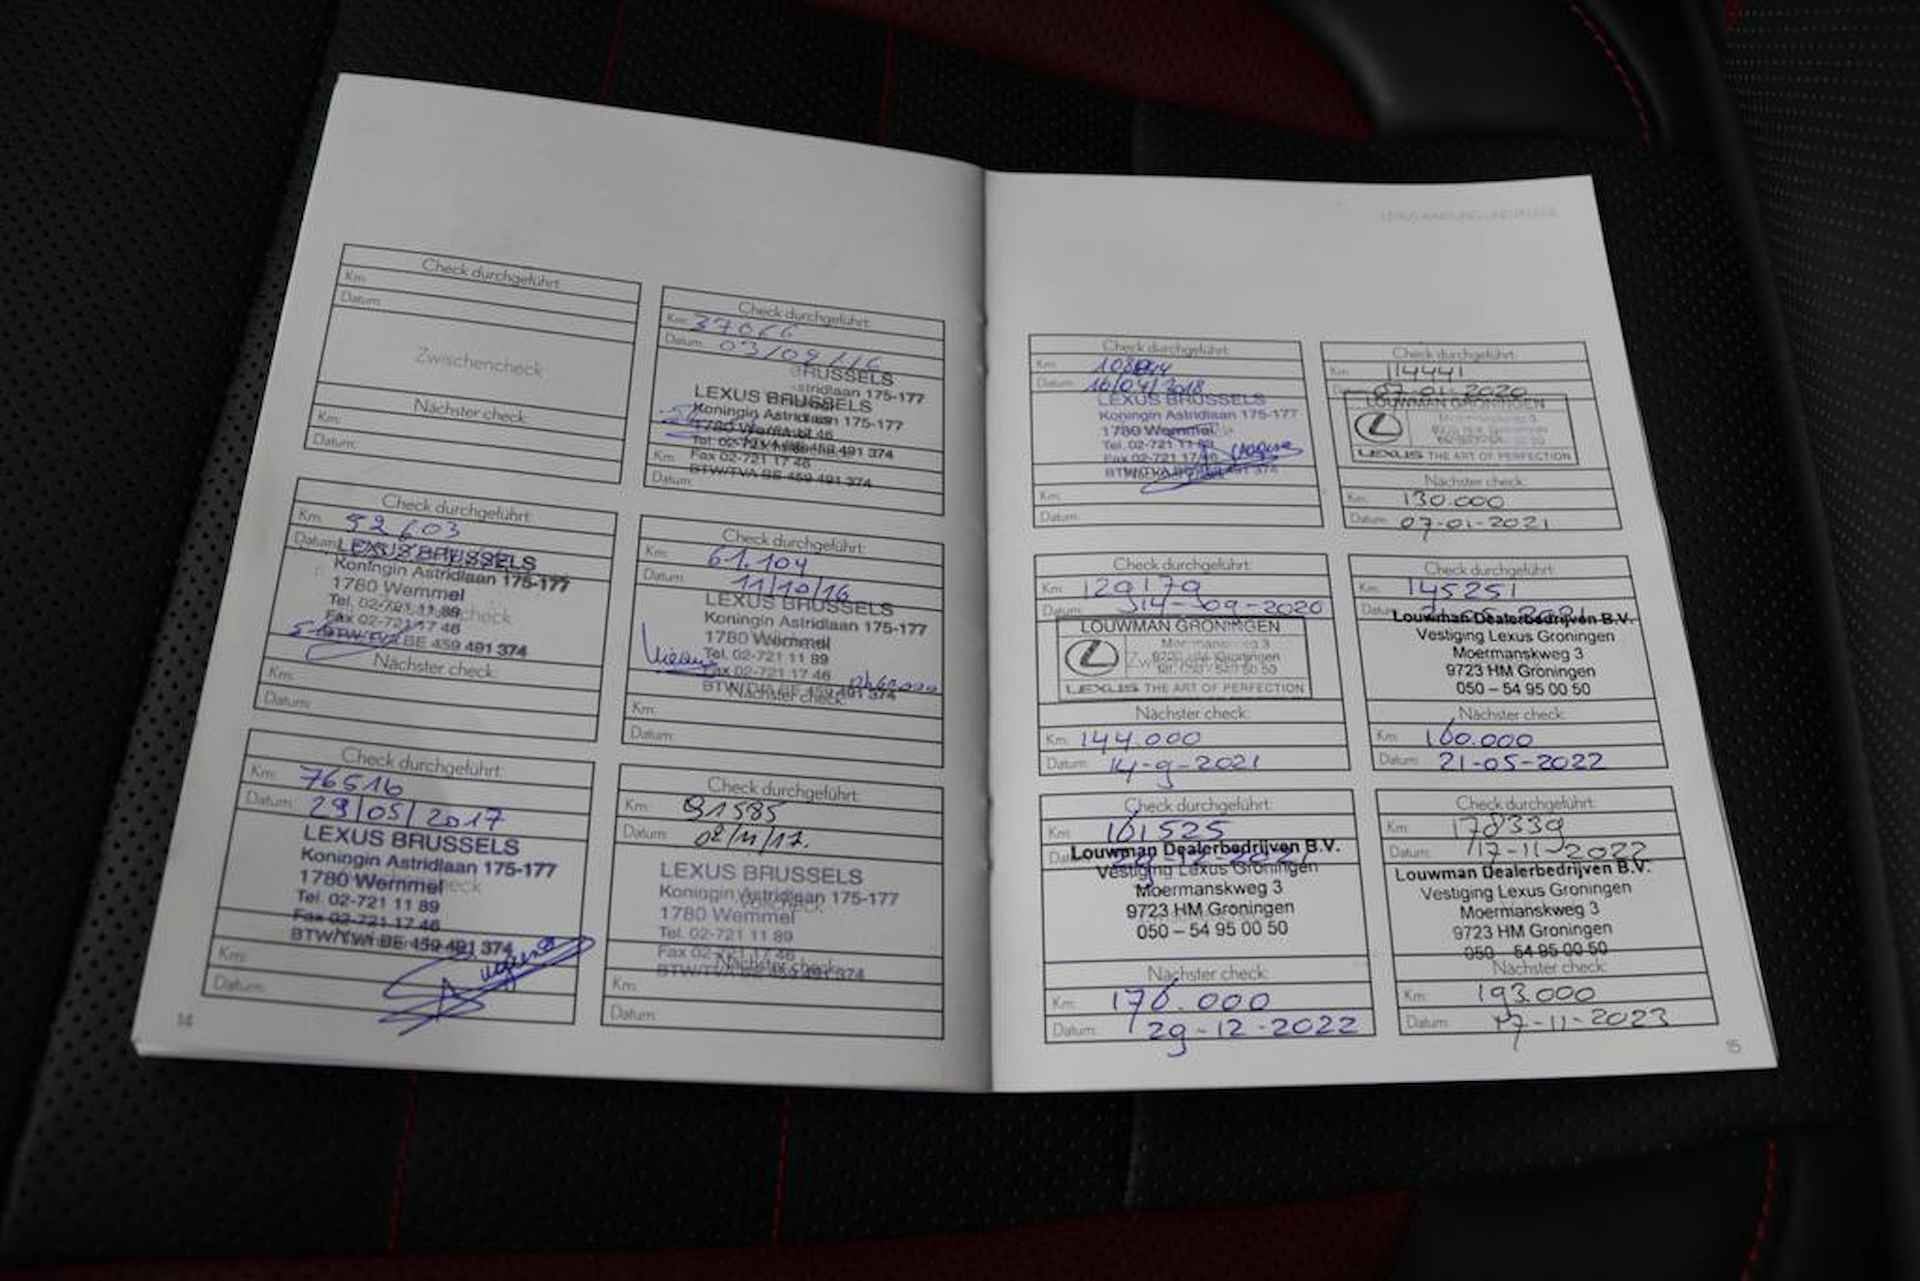 Check durchgeführt:
Km:
Datum:
Zwischencheck
Nächster check:
Km:
Datum:
Check durchgeführt:
Km:
Datum:
BRUSSELS
LEXUS BRUSSELS
Koningin Astridlaan 175-177
1780 Wemmel
Tel. 02-721 11 89
Fax 02-721 17 46
BTW/TVA BE 459 491 374
Km:
Datum:
Check durchgeführt:
Km: 52603
Datum:
LEXUS BRUSSELS
Koningin Astridlaan 175-177
1780 Wemmel
Tel. 02-721 11 89
Fax 02-721 17 46
BTW/TVA BE 459 491 374
Nächster check:
Km:
Datum:
Check durchgeführt:
Km: 61.104
Datum: 11/10/16
LEXUS BRUSSELS
Koningin Astridlaan 175-177
1780 Wemmel
Tel. 02-721 11 89
Fax 02-721 17 46
BTW/TVA BE 459 491 374
Nächster check:
Km:
Datum:
Check durchgeführt:
Km: 76516
Datum: 29/05/2017
LEXUS BRUSSELS
Koningin Astridlaan 175-177
1780 Wemmel
Tel. 02-721 11 89
Fax 02-721 17 46
BTW/TVA BE 459 491 374
Km:
Datum:
Check durchgeführt:
Km: 91585
Datum: 02/11/17.
LEXUS BRUSSELS
Koningin Astridlaan 175-177
1780 Wemmel
Tel. 02-721 11 89
Fax 02-721 17 46
BTW/TVA BE 459 491 374
Nächster check:
Km:
Datum:
14
Check durchgeführt:
Km:
Datum: 16/04/2018
LEXUS BRUSSELS
Koningin Astridlaan 175-177
1780 Wemmel
Tel. 02-721 11 89
Fax 02-721 17 46
BTW/TVA BE 459 491 374
Km:
Datum:
Check durchgeführt:
Km: 114441
Datum: 07-01-2020
LOUWMAN GRONINGEN
LEXUS THE ART OF PERFECTION
Nächster check:
Km: 130.000
Datum: 07-01-2021
Check durchgeführt:
Km: 129179
Datum: 14-09-2020
LOUWMAN GRONINGEN
LEXUS THE ART OF PERFECTION
Nächster check:
Km: 144.000
Datum: 14-9-2021
Check durchgeführt:
Km: 145251
Datum:
Louwman Dealerbedrijven B.V.
Vestiging Lexus Groningen
Moermanskweg 3
9723 HM Groningen
050 – 54 95 00 50
Nächster check:
Km: 160.000
Datum: 21-05-2022
Check durchgeführt:
Km: 161525
Datum:
Louwman Dealerbedrijven B.V.
Vestiging Lexus Groningen
Moermanskweg 3
9723 HM Groningen
050 – 54 95 00 50
Nächster check:
Km: 176.000
Datum: 29-12-2022
Check durchgeführt:
Km: 178339
Datum: 17-11-2022
Louwman Dealerbedrijven B.V.
Vestiging Lexus Groningen
Moermanskweg 3
9723 HM Groningen
050 – 54 95 00 50
Nächster check:
Km: 193.000
Datum: 17-11-2023
15